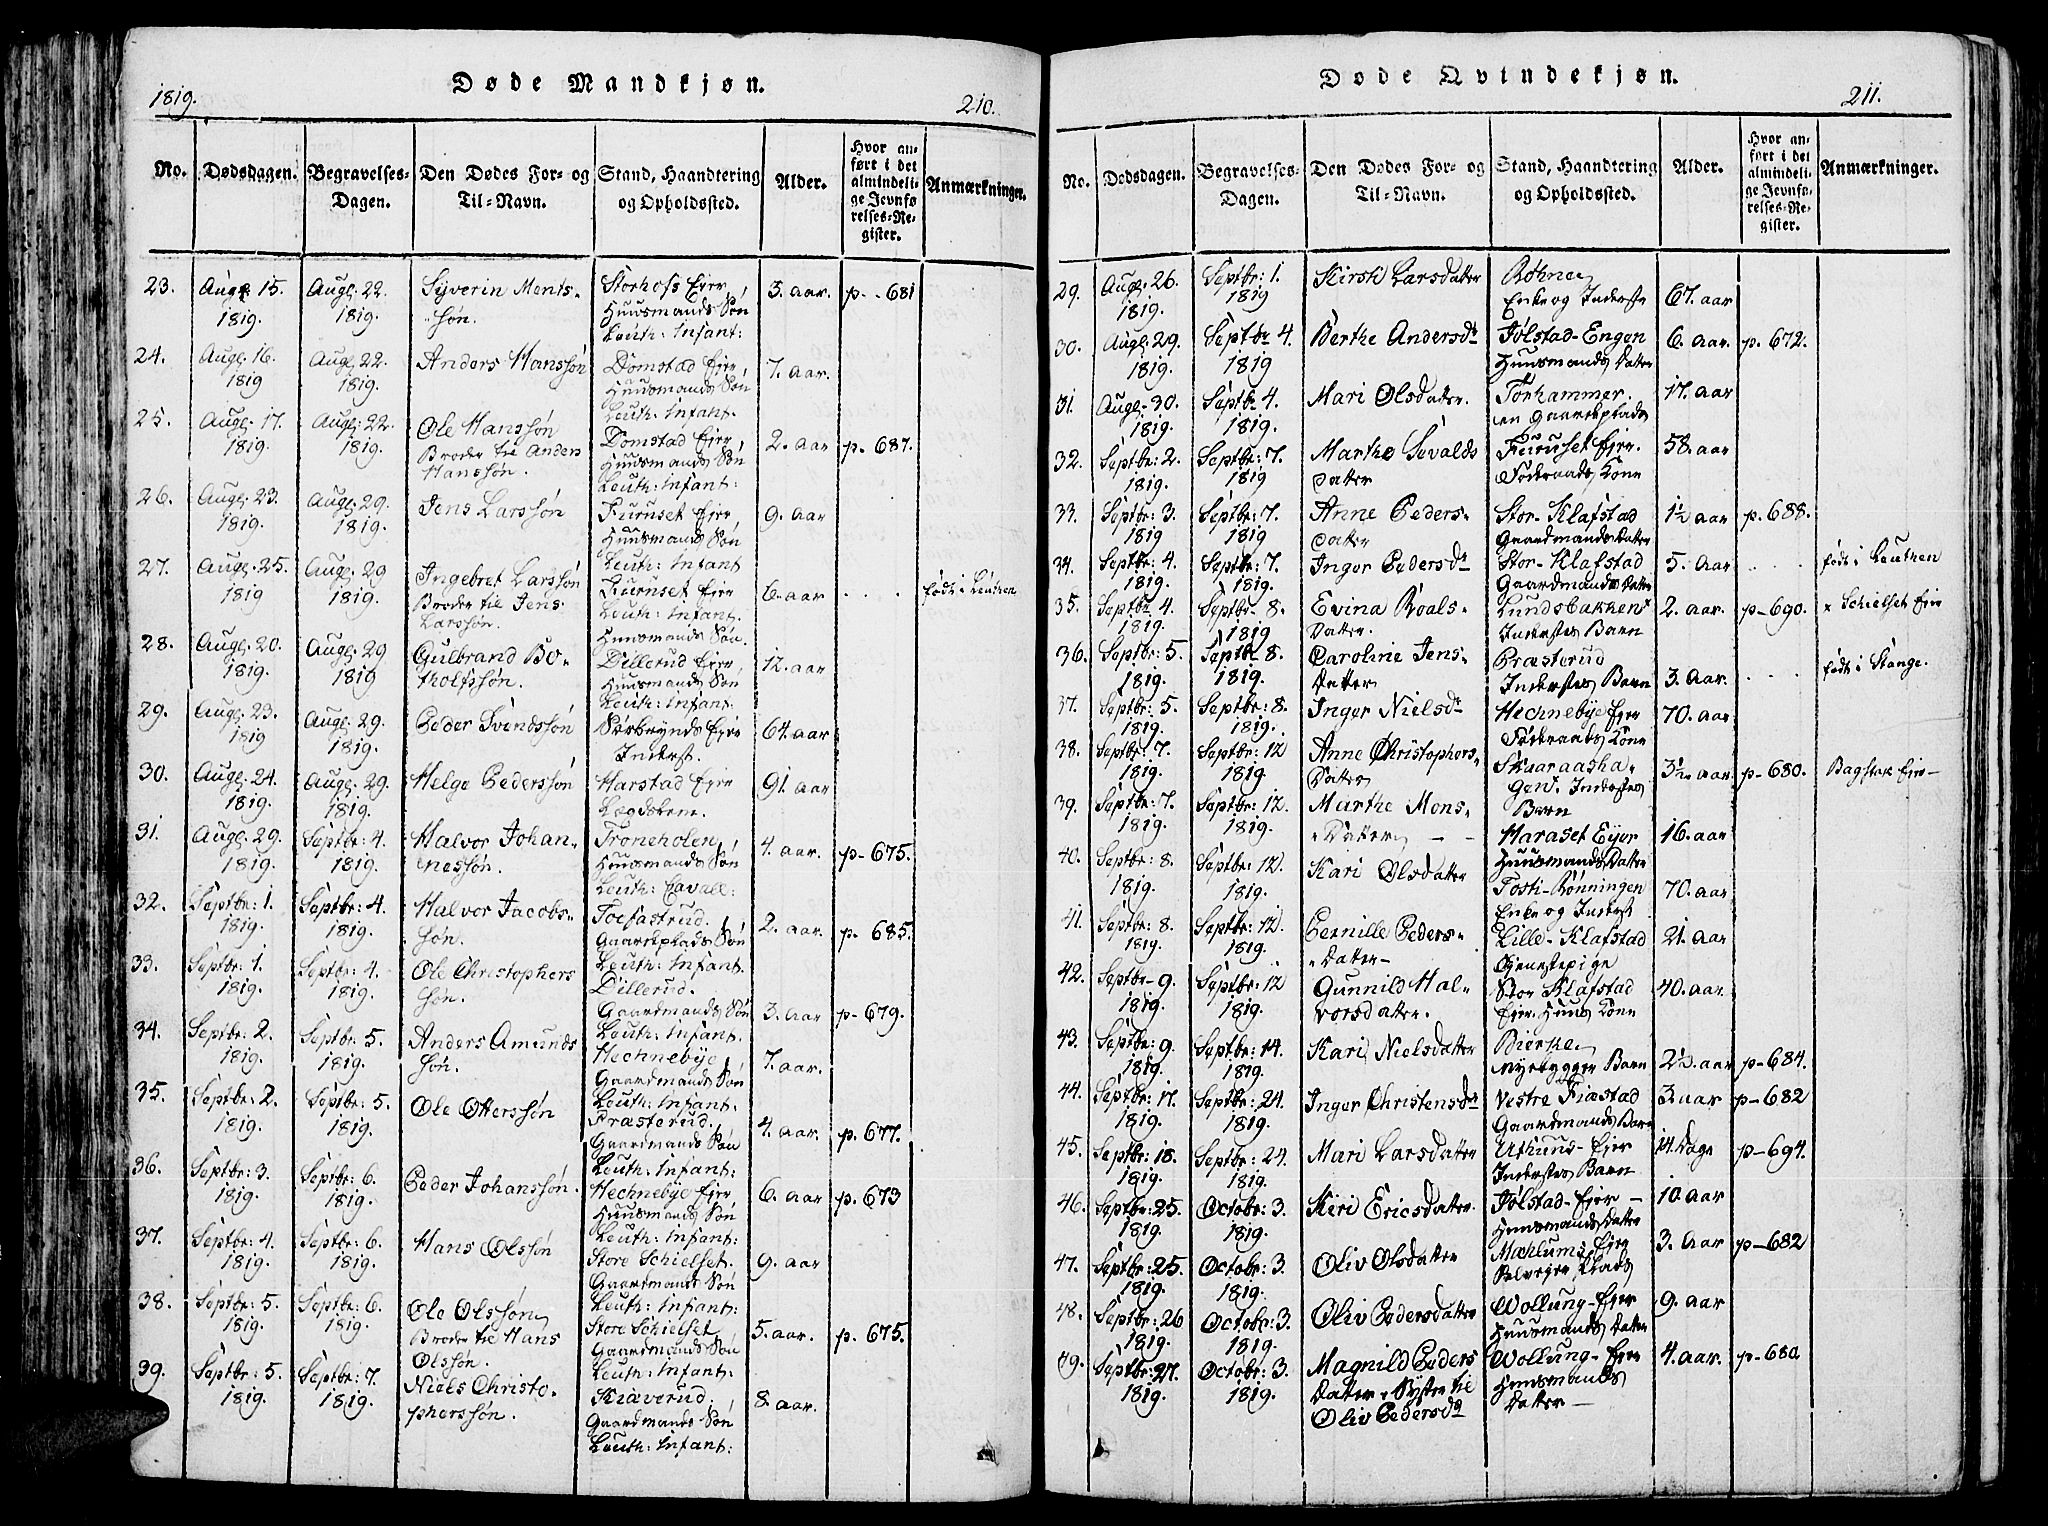 1819.
Døde Mandkjøn.
210.
No.
Dødsdagen.
Begravelses-
Dagen.
Den Dødes For- og
Til-Navn.
Stand, Haandtering
og Opholdssted.
Alder.
Hvor an-
ført i det
almindeli-
ge Jevnfø
relses-Re-
gister.
Anmærkninger.
23. Augs. 15. 1819. Augs. 22. 1819. Syverin Ments-
søn.
Storhofs Ejer
Huusmands Søn
Leuth: Infant:
3. aar. p. - 681
24. Augs. 16. 1819 Augs. 22. 1819. Anders Hanssøn
Domstad Ejer
Huusmands Søn
Leuth: Infant.
7. aar.
25. Augs. 17. 1819. Augs. 22. 1819. Ole Hanssøn
Broder til Anders
Hanssøn.
Domstad Ejer
Huusmands Søn
Leuth: Infant:
2. aar p. - 687.
26. Augs. 23. 1819. Augs. 29. 1819. Jens Larssøn
Furuset Ejer
Huusmands Søn
Leuth: Infant
9. aar
27. Augs. 25. 1819 Augs. 29 1819. Ingebret Larssøn
Broder til Jens
Larssøn.
Furuset Ejer
Leuth: Infant.
Huusmands Søn.
6. aar . . . født i Leuthen
28. Augs. 20. 1819. Augs. 29 1819 Gulbrand Bo-
tholfssøn.
Dillerud Ejer
Huusmands Søn
Leuth: Infant.
12. aar
29. Augs. 23. 1819 Augs. 29. 1819. Peder Svendssøn
Sørbrynds Ejer
Inderst.
64. aar
30. Augs. 24. 1819. Augs. 29. 1819. Helge Pederssøn
Harstad Ejer
Lægdslem.
91. aar
31. Augs. 29. 1819. Septbr: 4. 1819. Halvor Johan-
nessøn.
Troneholen
Huusmands Søn
Leuth: Cavall:
4. aar. p- 675.
32. Septbr: 1. 1819. Septbr: 4. Halvor Jacobs-
søn.
Toefastrud.
Gaardkplads Søn
Leuth: Infant.
2. aar. p. 685.
33. Septbr: 1. 1819. Septbr: 4. 1819. Ole Christophers
søn.
Dillerud.
Gaardmands Søn
Leuth: Infant.
3. aar p- 679.
34. Septbr: 2. 1819. Septbr: 5. 1819. Anders Amunds
søn.
Hechnebye
Gaardmands Søn
Leuth: Infant.
7. aar.
35. Septbr: 2. 1819. Septbr: 5. 1819. Ole Otterssøn
Præsterud.
Gaardmands Søn
Leuth: Infant:
4. aar. p. 677.
36. Septbr: 3. 1819. Septbr: 6. 1819. Peder Johanssøn.
Hechnebye Ejer
Huusmands Søn
Leuth: Infant:
6. aar p. 673
37. Septbr: 4. 1819. Septbr: 6. 1819. Hans Olssøn
Store Schielset.
Gaardmands Søn
Leuth: Infant:
9. aar
38. Septbr: 5. 1819. Septbr: 6. 1819. Ole Olssøn
Broder til Hans
Olssøn.
Store Schielset
Gaardmands Søn
Leuth: Infant:
5. aar. p. 675.
39. Septbr: 5. 1819. Septbr: 7. 1819. Niels Christo-
pherssøn.
Kiæverud.
Gaardmands Søn
Leuth: Infant:
8. aar.
Døde Qvindekjøn.
211.
No.
Dødsdagen.
Begravelses-
Dagen.
Den Dødes For- og
Til-Navn.
Stand, Haandtering
og Opholdssted.
Alder.
Hvor an-
ført i det
almindeli-
ge Jevnfø-
relses-Re-
gister.
Anmærkninger.
29. Augs. 26. 1819. Septbr: 1. 1819 Kirsti Larsdatter
Røhne
Enke og Inderste
67. aar
30. Augs. 29. 1819. Septbr 4. 1819 Berthe Andersdr
Jølstad-Engen
Huusmands Datter
6. aar. p. 672.
31. Augs. 30. 1819. Septbr 4. 1819. Mari Olsdatter.
Torhammer.
en Gaardkplads
17. aar
32. Septbr: 2. 1819. Septbr: 7. 1819 Marthe Sevalds
Datter
Furuset Ejer.
Føderaads Kone
58. aar
33. Septbr: 3. 1819 Septbr: 7. 1819 Anne Peders-
Datter
Stor-Klafstad
Gaardmands Datter
1½ aar p. 688.
34. Septbr: 4. 1819. Septbr: 7. 1819. Inger Pedersdr
Stor-Klafstad
Gaardmands Datter
5. Aar . . . født i Leuthen
35. Septbr 4. 1819. Septbr. 8. 1819 Evina Roals-
Datter.
Lundsbakken x
Inderstes Barn
2. aar. p-690. x Schielset Ejer
36. Septbr: 5. 1819. Septbr 8. 1819. Caroline Jens-
Datter
Præsterud
Inderstes Barn
3. Aar. . . . født i Stange.
37. Septbr: 5. 1819. Septbr: 8. 1819. Inger Nielsdr
Hechnebye Ejer
Føderaads Kone
70. aar
38. Septbr: 7. 1819. Septbr: 12 1819. Anne Christophers-
Datter
Skaraasha-
gen. Inderstes
Barn
3½ aar p-680. Bagstad Ejer-
39. Septbr: 7. 1819. Septbr: 12. 1819. Marthe Mons-
Datter
Haraset Eyer
Huusmands Datter
16. aar
40. Septbr: 8. 1819. Septbr: 12. 1819. Kari Olsdatter
Tosti-Rønningen
Enke og Inderst
70. aar
41. Septbr: 8. 1819. Septbr: 12. 1819. Pernille Peders-
Datter-
Lille-Klafstad
Tjenestepige
21. aar
42. Septbr- 9. 1819. Septbr: 12 1819. Gunnild Hal-
vorsdatter.
Stor Klafstad
Ejer. Huus Kone
40. aar.
43. Septbr: 9. 1819. Septbr: 14. 1819. Kari Nielsdatter
Bierke
Nyebygger Barn
2½ aar p-684.
44. Septbr: 17. 1819. Septbr: 24. 1819. Inger Christensdr
Vestre Fiæstad
Gaardmands Barn
3. aar p-682
45. Septbr: 18. 1819. Septbr: 24. 1819. Mari Larsdatter
Uthuus-Ejer
Inderstes Barn
14. Dage p-694.
46. Septbr: 25. 1819. Octobr: 3. 1819. Kiri Ericsdatter.
Jølstad-Ejer-
Huusmands Datter
10 aar
47. Septbr: 25. 1819. Octobr: 3. 1819. Oliv Olsdatter
Mæhlums Ejer
Selvejer Plads
3. Aar p-682
48. Septbr: 26 1819. Octobr: 3. 1819. Oliv Pedersdatter
Wollung-Ejer
Huusmands Datter
9. aar
49. Septbr: 27. 1819. Octobr: 3. 1819. Magnild Peders
Datter. Syster til
Oliv Pedersdr
Wollung-Ejer
Huusmands
Datter-
4. aar. p-680